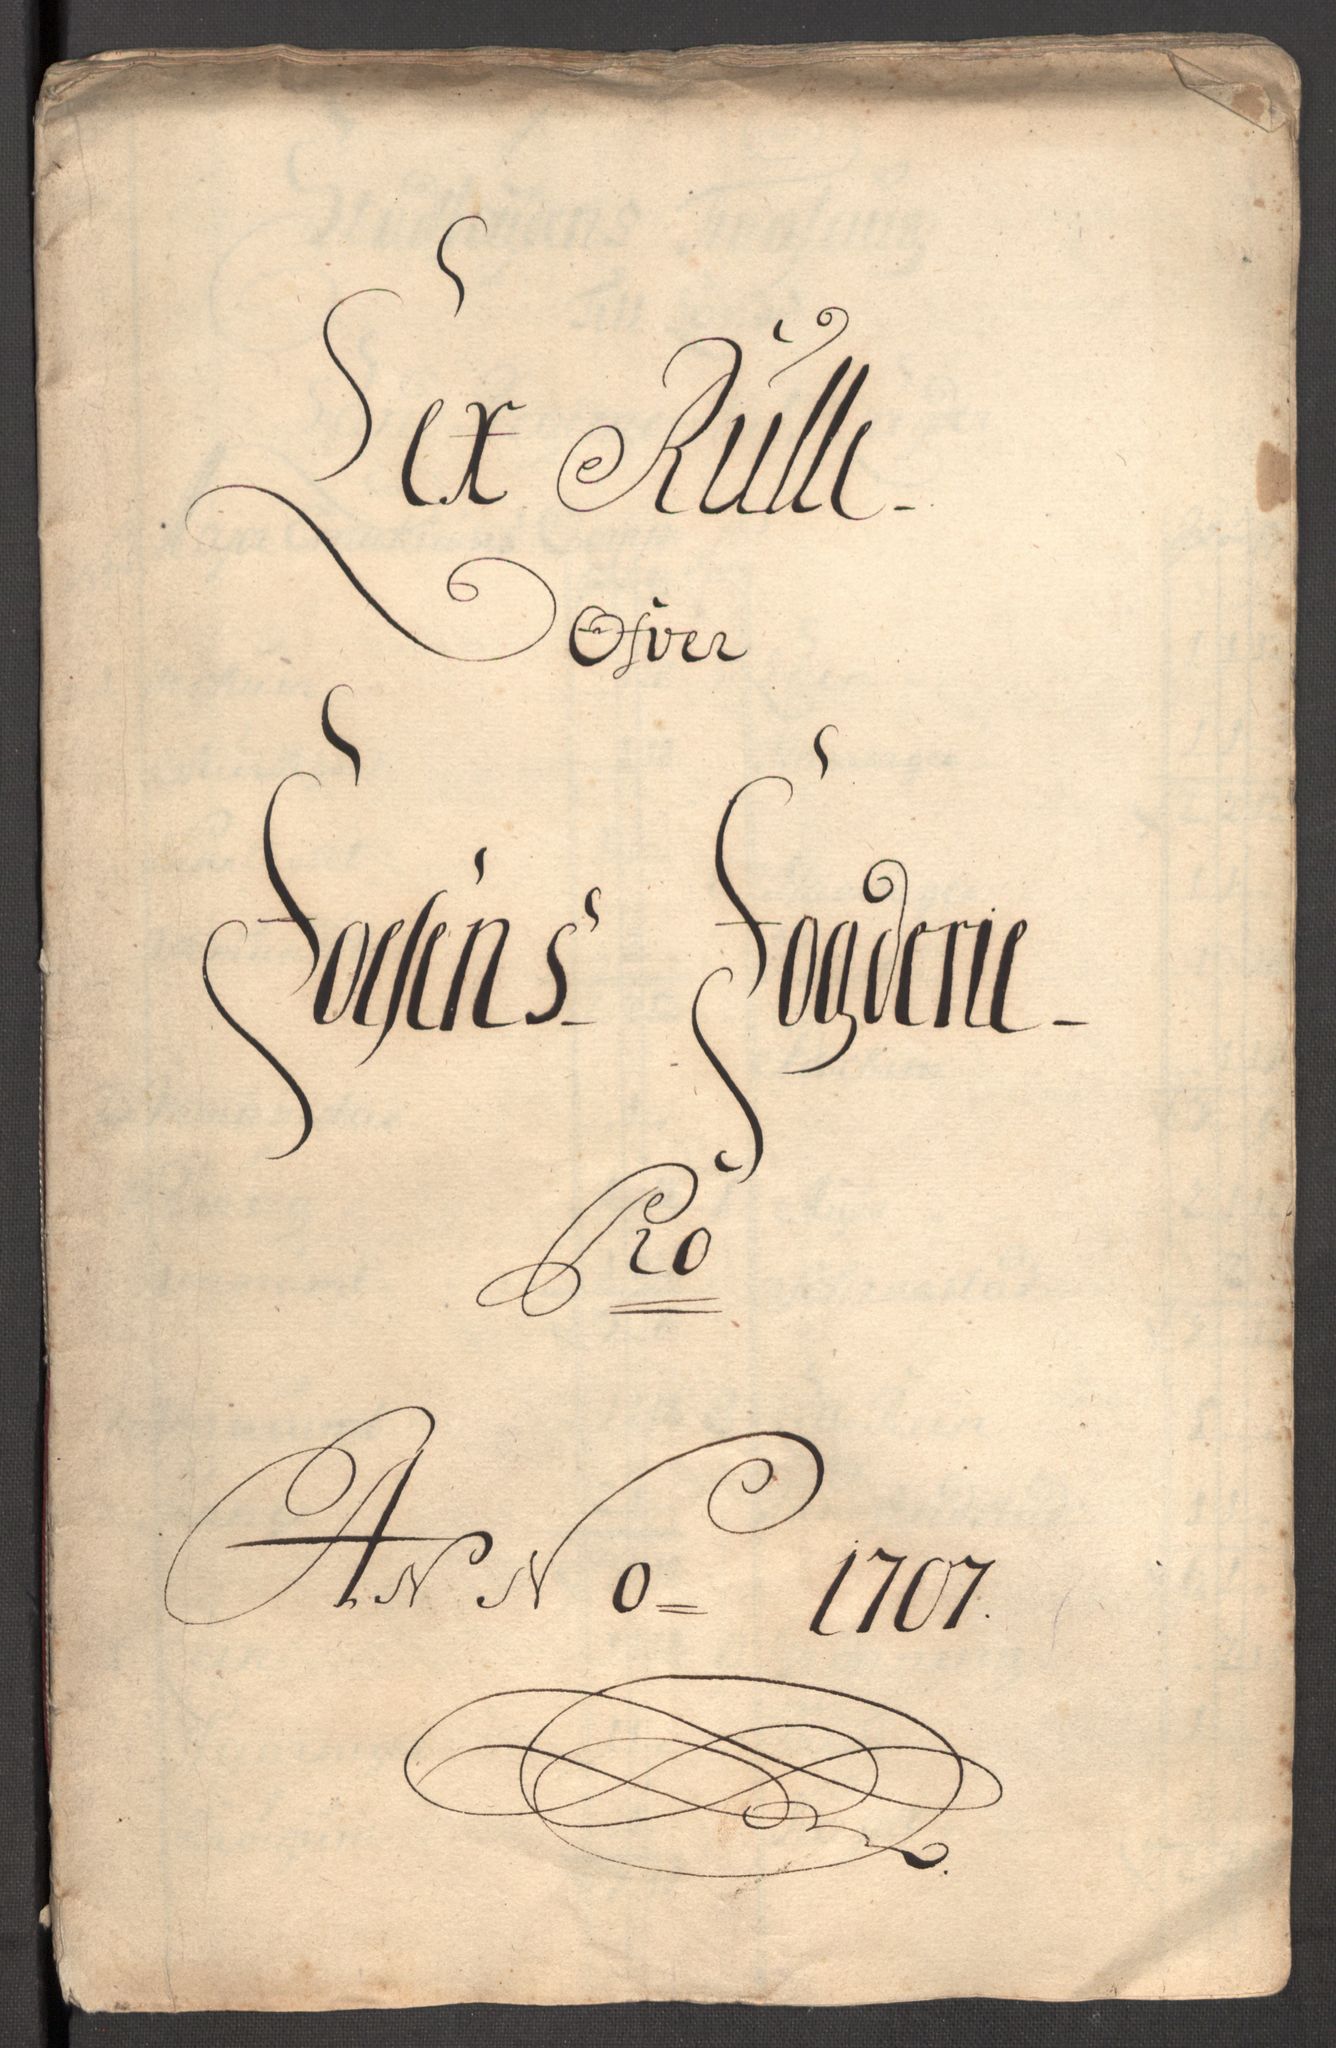 Lex Rulle
Ofver
Foesens Fogderie
Pro
ANNo 1707.